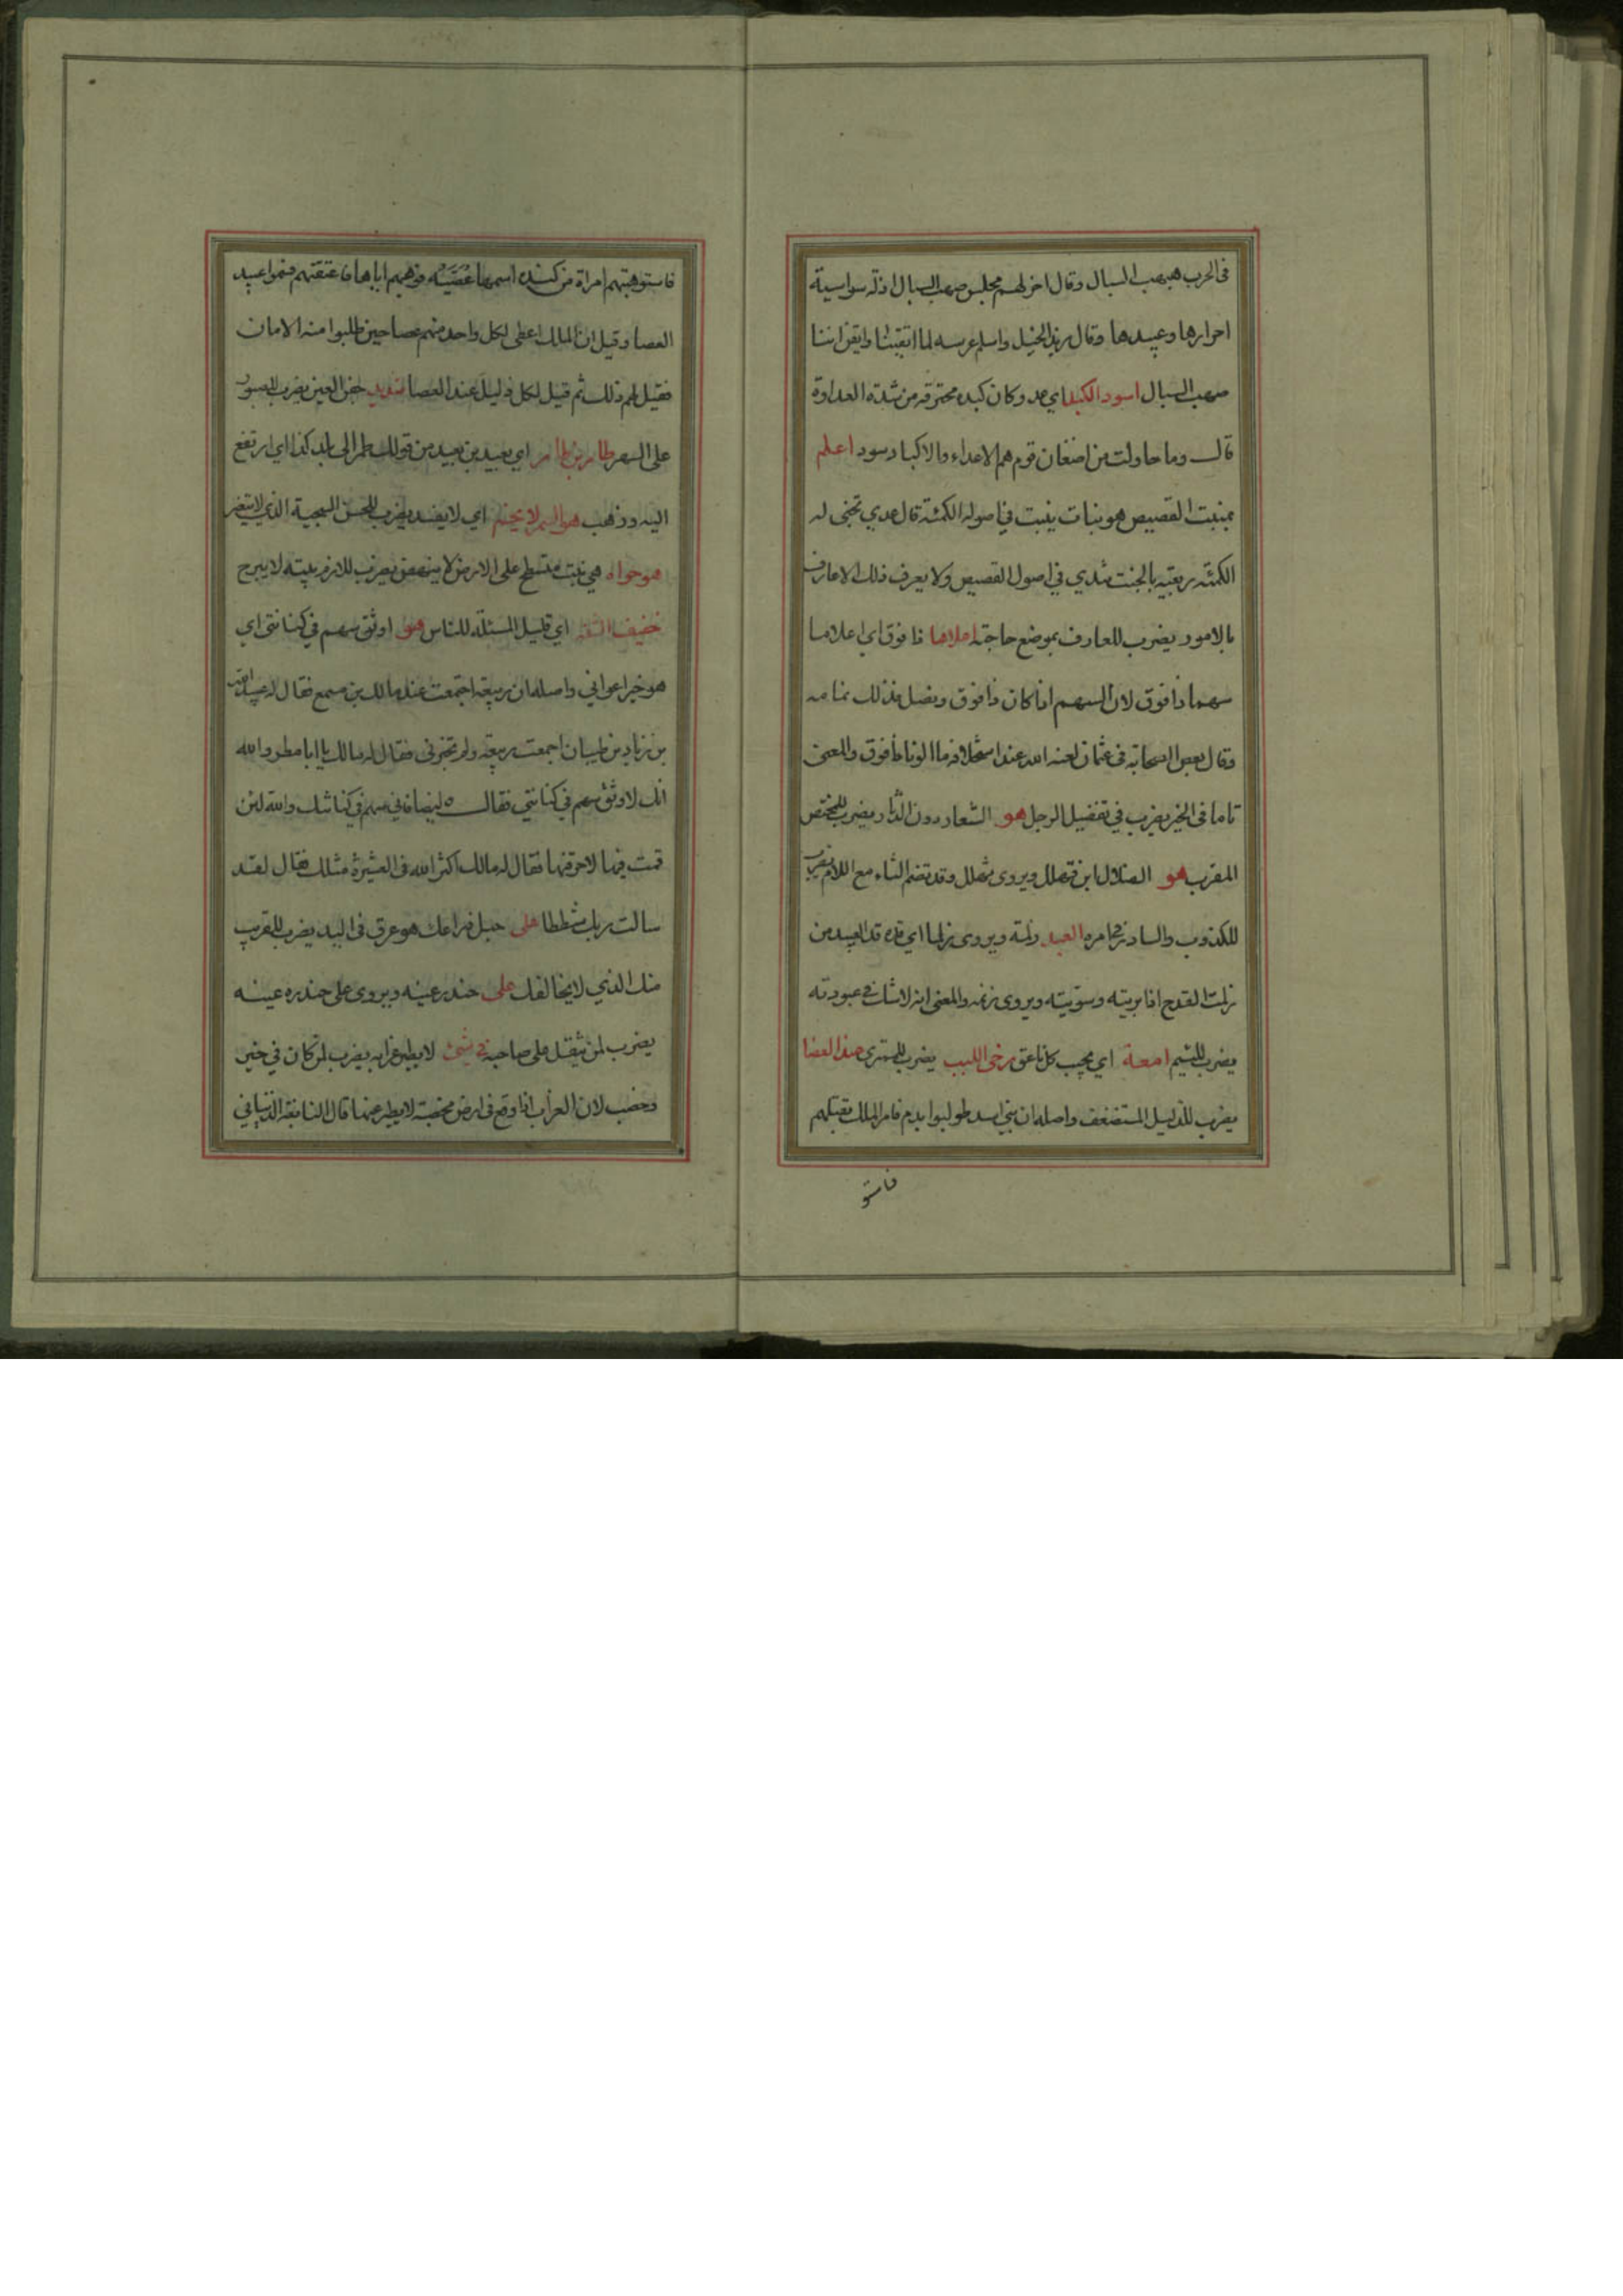 فى الحرب صهب السبال وقال اخر لهم مجلس صهب السبال اذلة سواسية
احرارها وعبيدها وقال زيد الخيل واسلم عرسه لما التقينا وايقن اننا
صهب السبال اسود الكبد اي عدو كان كبده محترقه من شدة العداوة
قال وما حاولت من اضغان قوم هم الاعداء والاكباد سود اعلم
بمنبت القصيص هو نبات ينبت في اصوله الكمئة قال عدي تجنى له
الكمئة ربعية بالخبت تندي في اصول القصيص ولا يعرف ذلك الا عارف
بالامور يضرب للعارف بموضع حاجته اعلاها ذا فوق اي اعلاها
سهما ذا فوق لان السهم اذا كان ذا فوق ونصل فذلك تمامه
وقال بعض الصحابة فى عثمان عند استخلافه ما الونا ذا فوق والمعنى
تاما فى الخير يضرب في تفضيل الرجل هو الشعار دون الدثار يضرب للمختص
المقرب هو الضلال ابن فهلل ويروى ثهلل وقد تضم الثاء مع اللام يضرب
للكذوب والسادر في امره العبد زلمة ويروى زلما اي قده قد العبيد من
زلمت القدح اذا بريته وسويته ويروى زنمه والمعنى انه لا شك في عبودته
يضرب للئيم امعة اي يجيب كل ناعق رخى اللبب يضرب للمثرى عبد العصا
يضرب للذليل المستضعف واصله ان بني اسد طولبوا بدم فامر الملك بقتلهم
فاستو
فاستوهبتهم امراة من كنده اسمها عصية فوهبهم اياها فاعتقتهم فسموا عبيد
العصا وقيل ان الملك اعطى لكل واحد منهم عصا حين طلبوا منه الامان
فقيل لهم ذلك ثم قيل لكل ذليل عند العصا شديد جفن العين يضرب للصبور
على السهر طامر بن طامر اي بعيد بن بعيد من قولك طمر الى بلد كذا اي ارتفع
اليه وذهب هو السمن لا يخم اي لا يفسد يضرب للحسن السجية الذي لا يتغير
هو حواه هي نبت منسطح على الارض لا ينهض يضرب للازم بيته لا يبرح
خفيف الشقه اي قليل المسئلة للناس هو اوثق سهم في كنانتى اي
هو خير اعواني واصله ان ربيعة اجتمعت عند مالك بن مسمع فقال له عبيد الله
بن زياد بن ظبيان اجمعت ربيعة ولم تخبرنى فقال له مالك يا ابا مطر والله
انك لاوثق سهم في كنانتي فقال ايضا فانى سهم في كنانتك والله لئن
قمت فيها لاخرقنها فقال له مالك اكثر الله فى العشيرة مثلك فقال لقد
سالت ربك شططا على حبل ذراعك هو عرق فى اليد يضرب للقريب
منك الذي لا يخالفك على حندر عينه ويروى على حندره عينه
يضرب لمن يثقل على صاحبه في شئ لا يطير غرابه يضرب لمن كان في خير
وخصب لان الغراب اذا وقع فى ارض مخصبة لا يطير عنها قال النابغة الذبياني